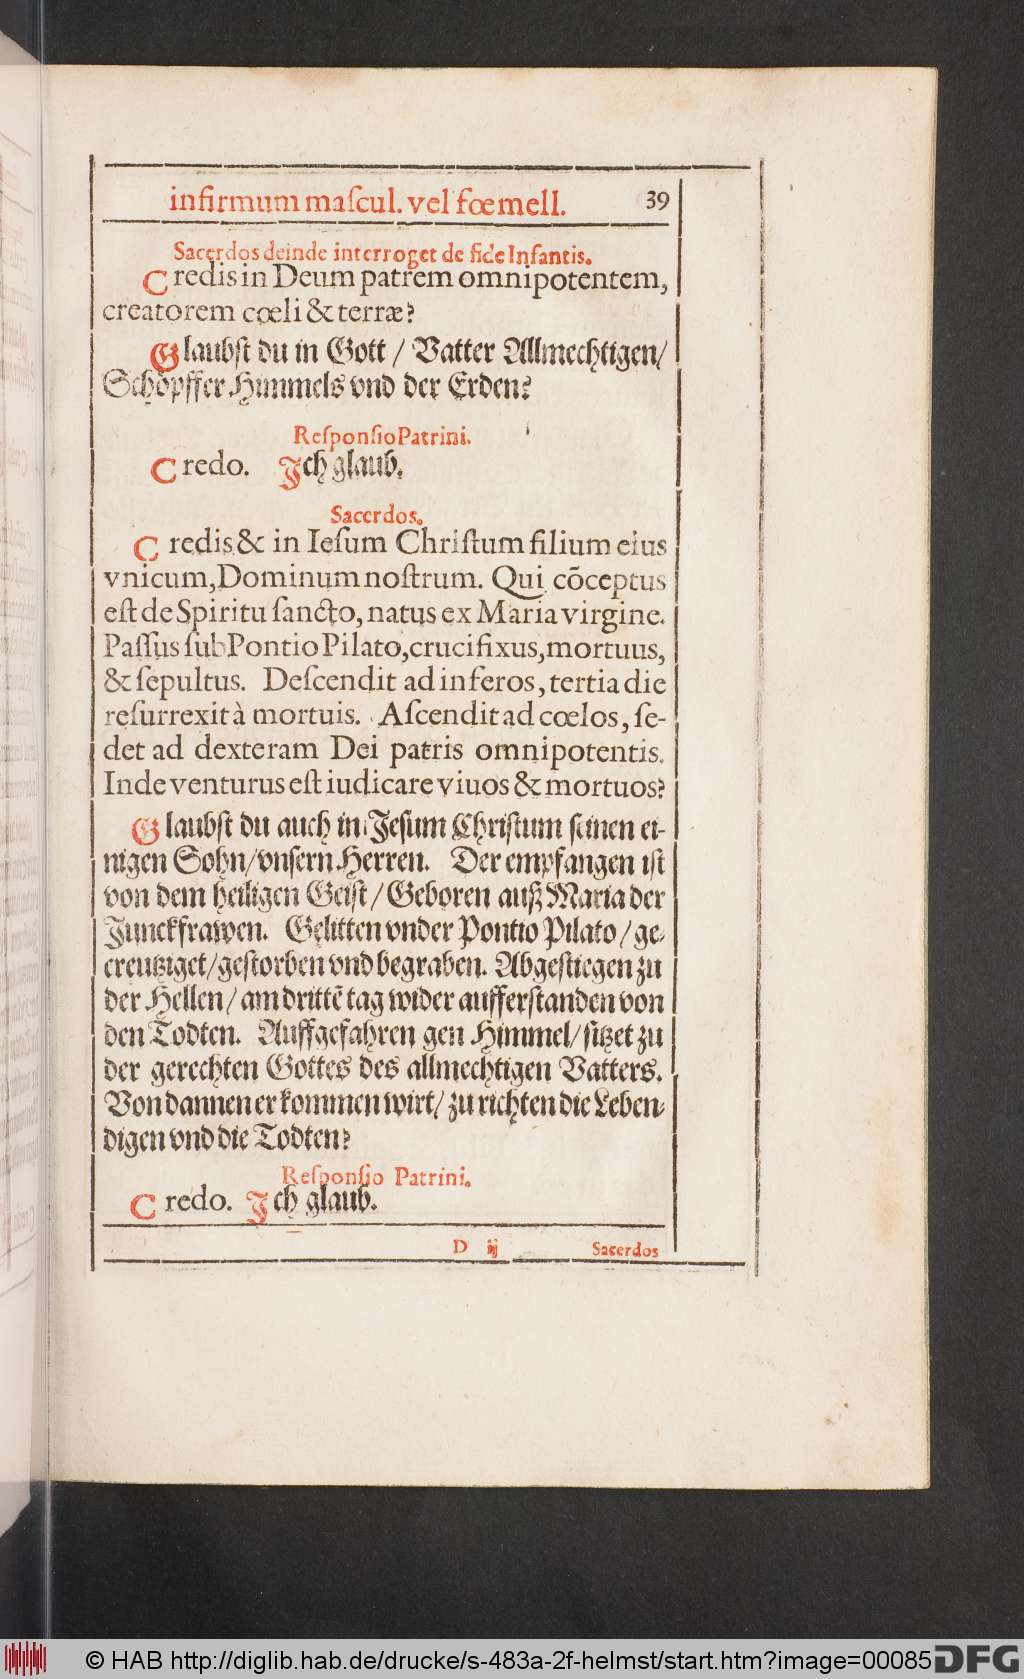 infirmum maſcul. vel fœmell. 39
Sacerdos deinde interroget de fide Infantis.
Credis in Deum patrem omnipotentem,
creatorem cœli & terræ?
Glaubſt du in Gott / Vatter Allmechtigen/
Schöpffer Himmels vnd der Erden?
Reſponſio Patrini.
Credo. Ich glaub.
Sacerdos.
Credis & in Ieſum Chriſtum filium eius
vnicum, Dominum noſtrum. Qui cōceptus
eſt de Spiritu ſancto, natus ex Maria virgine.
Paſſus ſub Pontio Pilato, crucifixus, mortuus,
& ſepultus. Deſcendit ad inferos, tertia die
reſurrexit à mortuis. Aſcendit ad cœlos, ſe-
det ad dexteram Dei patris omnipotentis.
Inde venturus eſt iudicare viuos & mortuos?
Glaubſt du auch in Jeſum Chriſtum ſeinen ei-
nigen Sohn/ vnſern Herren. Der empfangen iſt
von dem heiligen Geiſt / Geboren auß Maria der
Junckfrawen. Gelitten vnder Pontio Pilato / ge-
creutziget/ geſtorben vnd begraben. Abgeſtiegen zu
der Hellen / am drittē tag wider aufferſtanden von
den Todten. Auffgefahren gen Himmel/ ſitzet zu
der gerechten Gottes des allmechtigen Vatters.
Von dannen er kommen wirt/ zu richten die Leben-
digen vnd die Todten?
Reſponſio Patrini.
Credo. Ich glaub.
D ij Sacerdos
© HAB http://diglib.hab.de/drucke/s-483a-2f-helmst/start.htm?image=00085 DFG